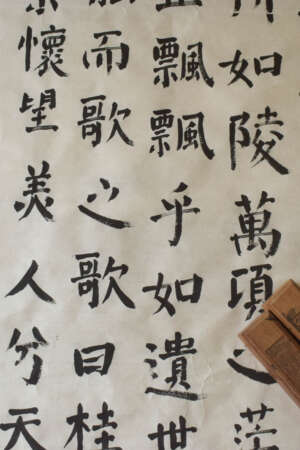 所如陵萬項之茫
飄飄乎如遺世
而歌之歌曰桂
懷望美人兮天